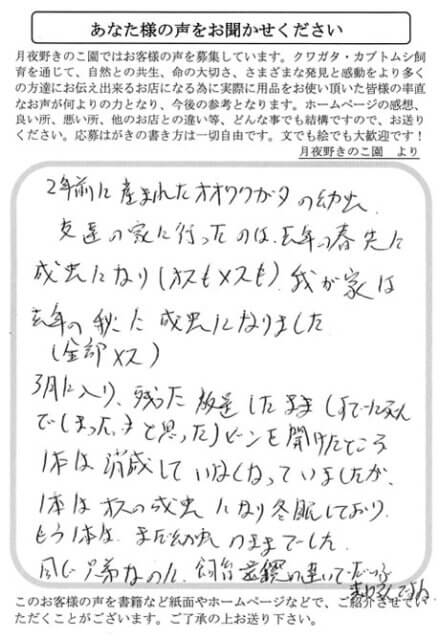 あなた様の声をお聞かせください
月夜野きのこ園ではお客様の声を募集しています。クワガタ・カブトムシ飼
育を通じて、自然との共生、命の大切さ、さまざまな発見と感動をより多く
の方達にお伝え出来るお店になる為に実際に用品をお使い頂いた皆様の率直
なお声が何よりの力となり、今後の参考となります。ホームページの感想、
良い所、悪い所、他のお店との違い等、どんな事でも結構ですので、お送り
ください。応募はがきの書き方は一切自由です。文でも絵でも大歓迎です！
月夜野きのこ園　より
2年前に産まれたオオクワガタの幼虫、
友達の家に行ったのは、去年の春先に
成虫になり(オスもメスも)我が家は
去年の秋に成虫になりました
(全部メス)
3月に入り、残った放置したまま(すでに死ん
でしまった、と思った)ビンを開けたところ
1本は消滅していなくなっていましたが、
1本はオスの成虫になり冬眠しており、
もう1本は、まだ幼虫のままでした。
同じ兄弟なのに、飼育
の違いで
このお客様の声を書籍など紙面やホームページなどで、ご紹介させてい
ただくことがございます。ご了承の上お送り下さい。